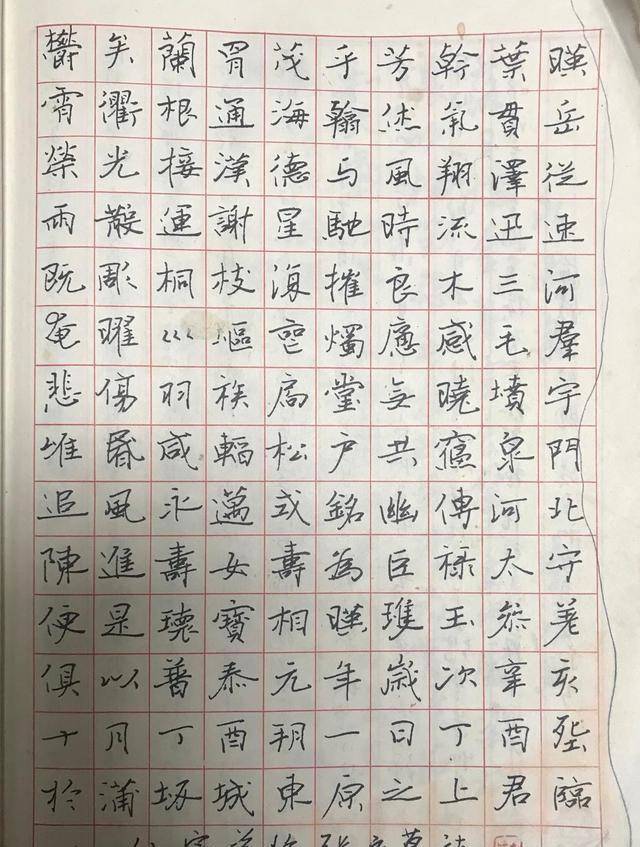 鬱矣蘭胃茂乎芳幹葉暎
霄衢根通海翰烋氣貫岳
榮光接漢德与風翔澤從
雨散運謝星馳時流迅速
既彫桐枝復摧良木三河
奄曜巛嶇堙燭應感毛羣
悲傷羽族扃堂無曉墳宇
唯昏咸韜松户共寢泉門
追風永邁或銘幽傳河北
陳進壽女壽為巨禄太守
便是瓌寶相暎瓊玉參差
俱以普泰元年歲次辛亥
十月丁酉朔一日丁酉塟
於蒲坂城東原之上君臨